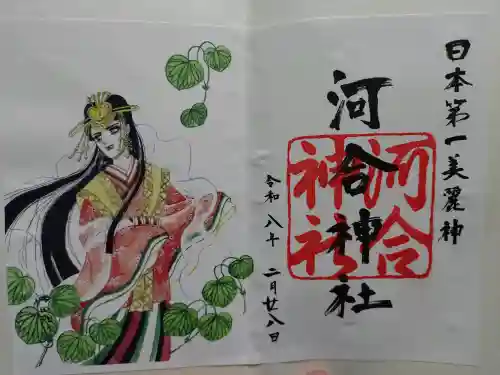 日本第一美麗神
河合神社
河合
神社
令和八年二月廿八日